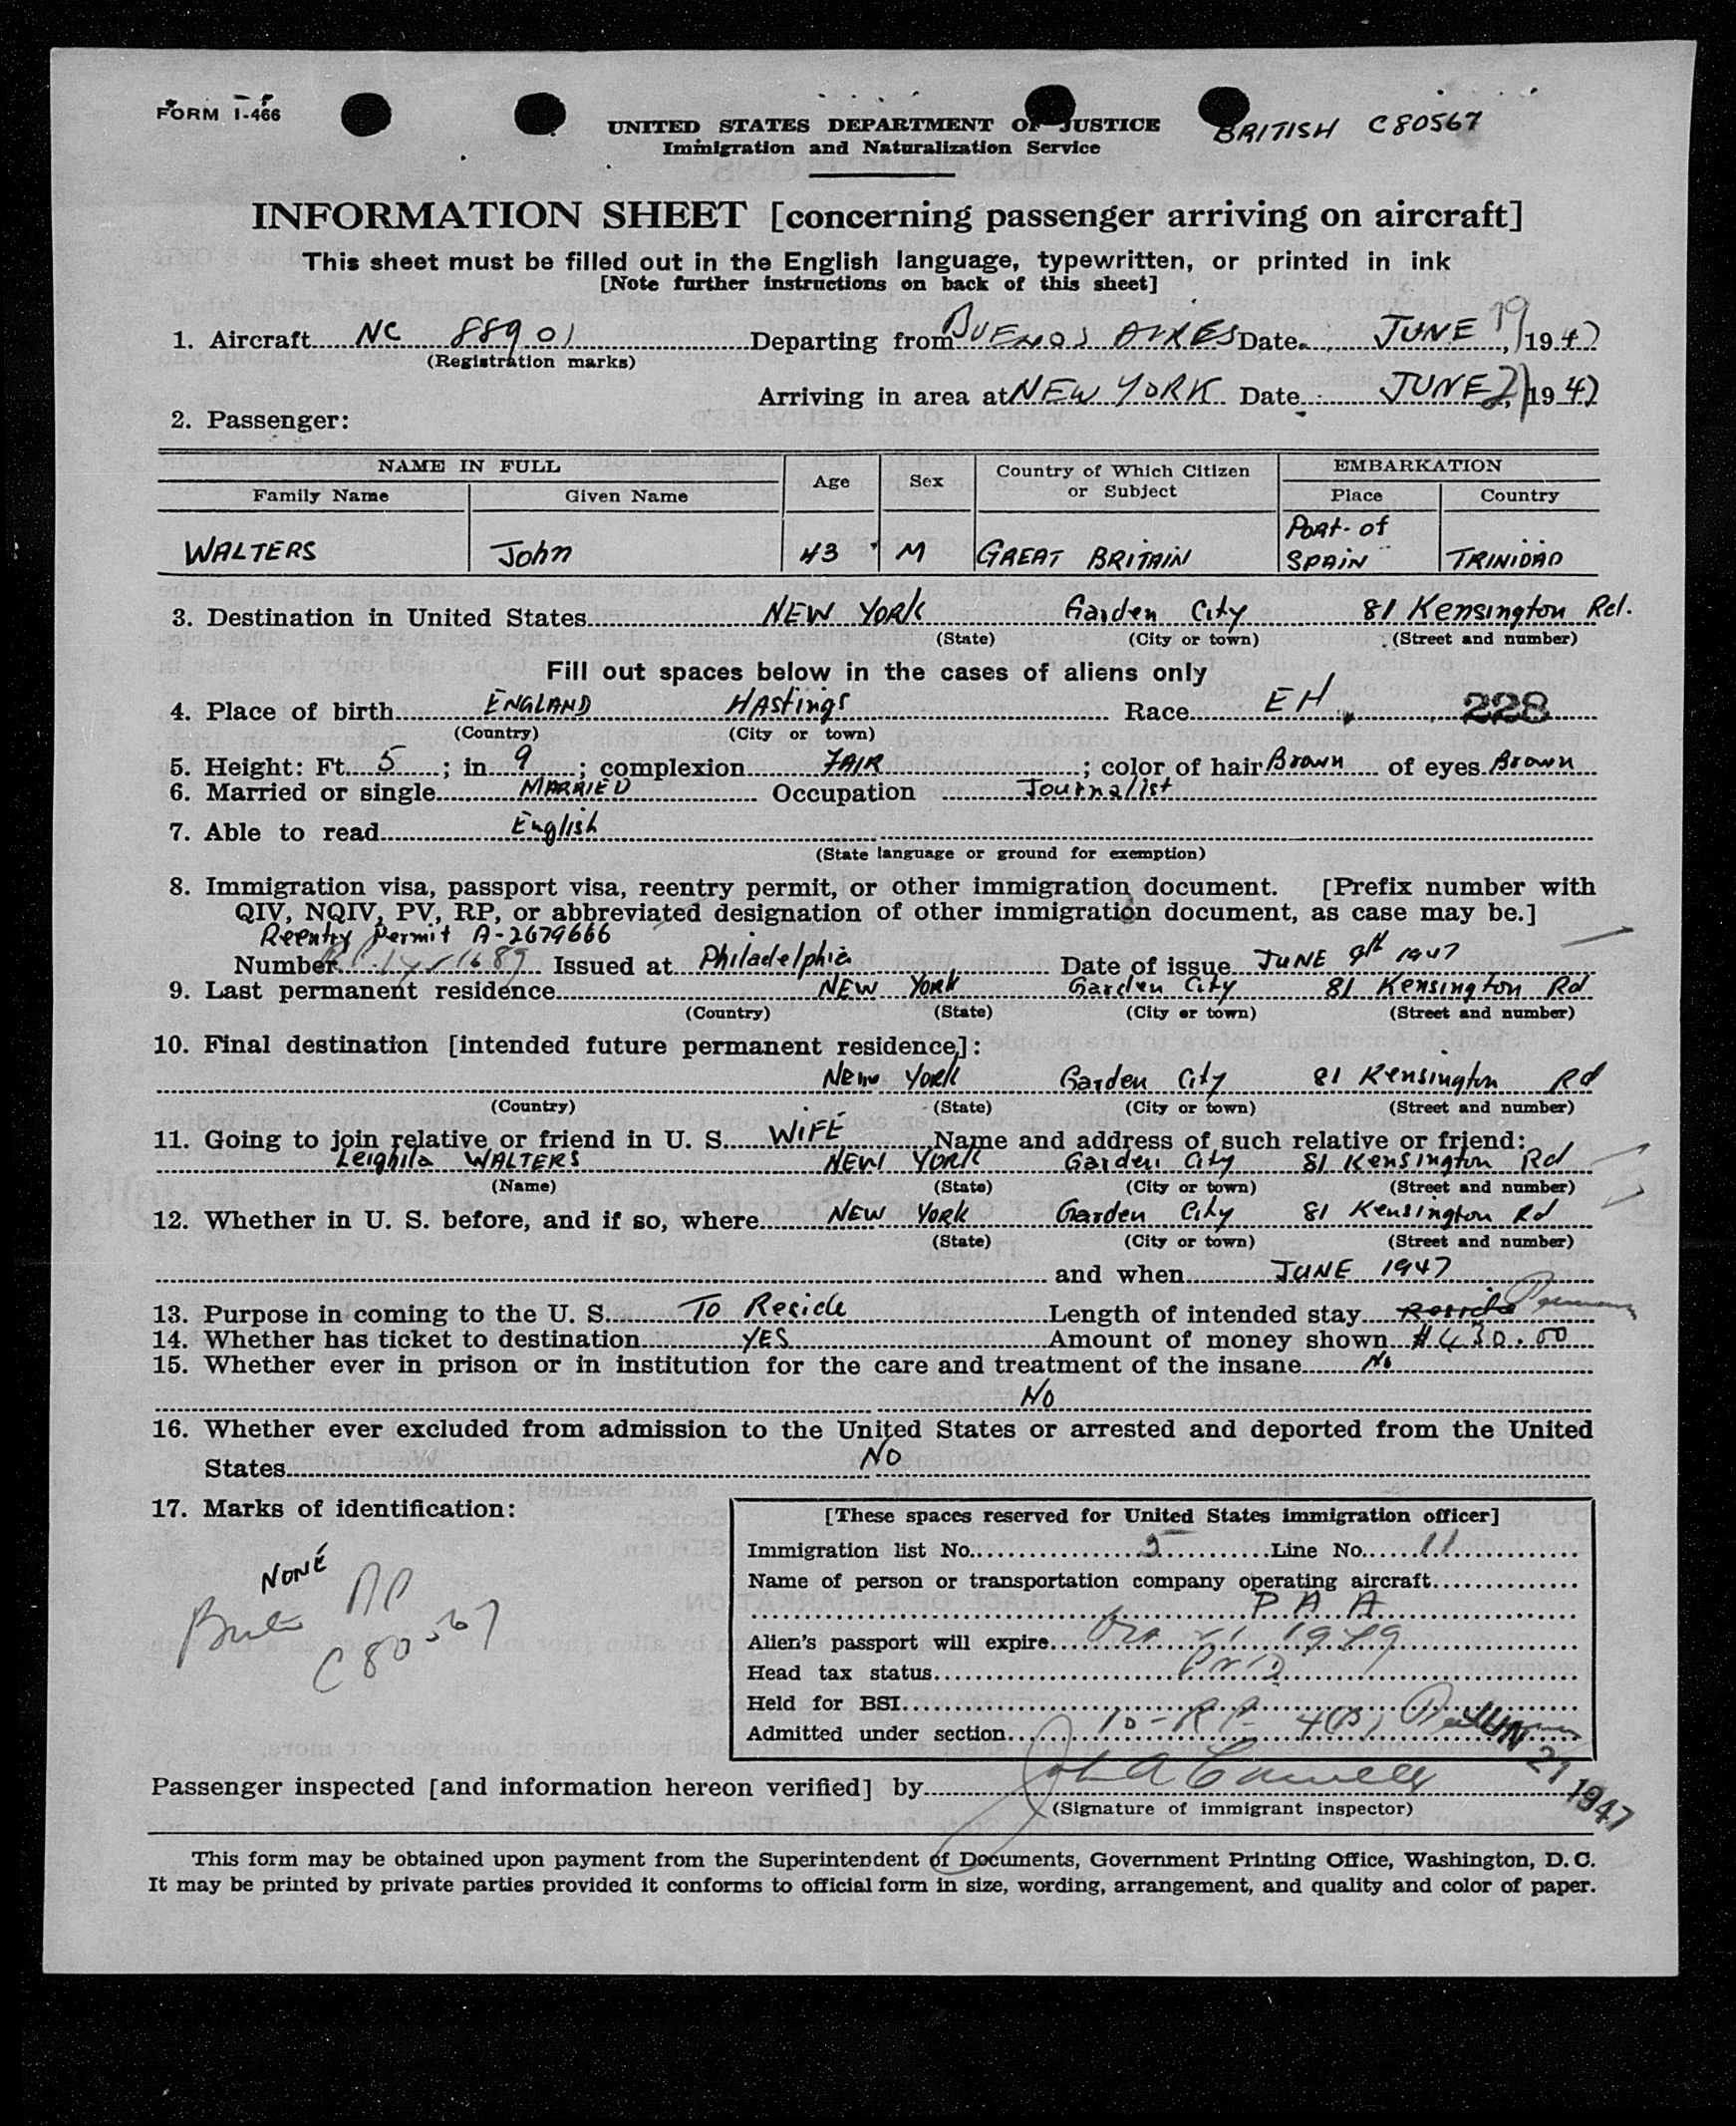 FORM I-466
UNITED STATES DEPARTMENT OF JUSTICE
BRITISH C80567
Immigration and Naturalization Service
INFORMATION SHEET [concerning passenger arriving on aircraft]
This sheet must be filled out in the English language, typewritten, or printed in ink
[Note further instructions on back of this sheet]
1. Aircraft NC 88901 Departing from BUENOS AIRES Date JUNE 19, 1947
(Registration marks)
Arriving in area at NEW YORK Date JUNE 21, 1947
2. Passenger:
NAME IN FULL Age Sex Country of Which Citizen or Subject EMBARKATION
Family Name Given Name Place Country
WALTERS John 43 M GREAT BRITAIN Port-of SPAIN TRINIDAD
3. Destination in United States NEW YORK Garden City 81 Kensington Rd.
(State) (City or town) (Street and number)
Fill out spaces below in the cases of aliens only
4. Place of birth ENGLAND Hastings Race EH 228
(Country) (City or town)
5. Height: Ft. 5; in 9; complexion FAIR; color of hair Brown of eyes Brown
6. Married or single MARRIED Occupation Journalist
7. Able to read English
(State language or ground for exemption)
8. Immigration visa, passport visa, reentry permit, or other immigration document. [Prefix number with
QIV, NQIV, PV, RP, or abbreviated designation of other immigration document, as case may be.]
Reentry Permit A-2679666
Number Issued at Philadelphia Date of issue JUNE 9th 1947
9. Last permanent residence NEW YORK Garden City 81 Kensington Rd
(Country) (State) (City or town) (Street and number)
10. Final destination [intended future permanent residence]:
New York Garden City 81 Kensington Rd
(Country) (State) (City or town) (Street and number)
11. Going to join relative or friend in U. S. WIFE Name and address of such relative or friend:
Leighila WALTERS NEW YORK Garden City 81 Kensington Rd
(Name) (State) (City or town) (Street and number)
12. Whether in U. S. before, and if so, where NEW YORK Garden City 81 Kensington Rd
(State) (City or town) (Street and number)
and when JUNE 1947
13. Purpose in coming to the U. S. To Reside Length of intended stay
14. Whether has ticket to destination YES Amount of money shown $430.00
15. Whether ever in prison or in institution for the care and treatment of the insane No
No
16. Whether ever excluded from admission to the United States or arrested and deported from the United
States NO
17. Marks of identification:
NONE
C80567
[These spaces reserved for United States immigration officer]
Immigration list No. 5 Line No. 11
Name of person or transportation company operating aircraft
P A A
Alien's passport will expire 1949
Head tax status
Held for BSI
Admitted under section
JUN 21 1947
Passenger inspected [and information hereon verified] by
(Signature of immigrant inspector)
This form may be obtained upon payment from the Superintendent of Documents, Government Printing Office, Washington, D. C.
It may be printed by private parties provided it conforms to official form in size, wording, arrangement, and quality and color of paper.